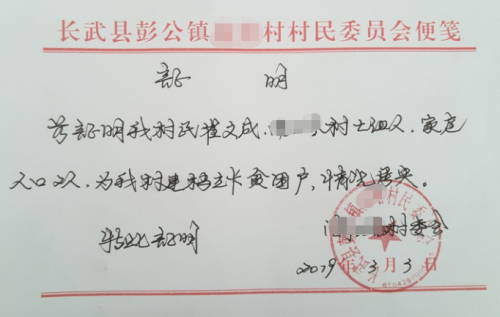 长武县彭公镇村村民委员会便笺
证 明
兹证明我村民崔文成,村七组人,家庭
人口2人,为我村建档立卡贫困户,情况属实。
特此证明
村委会
2019年3月3日